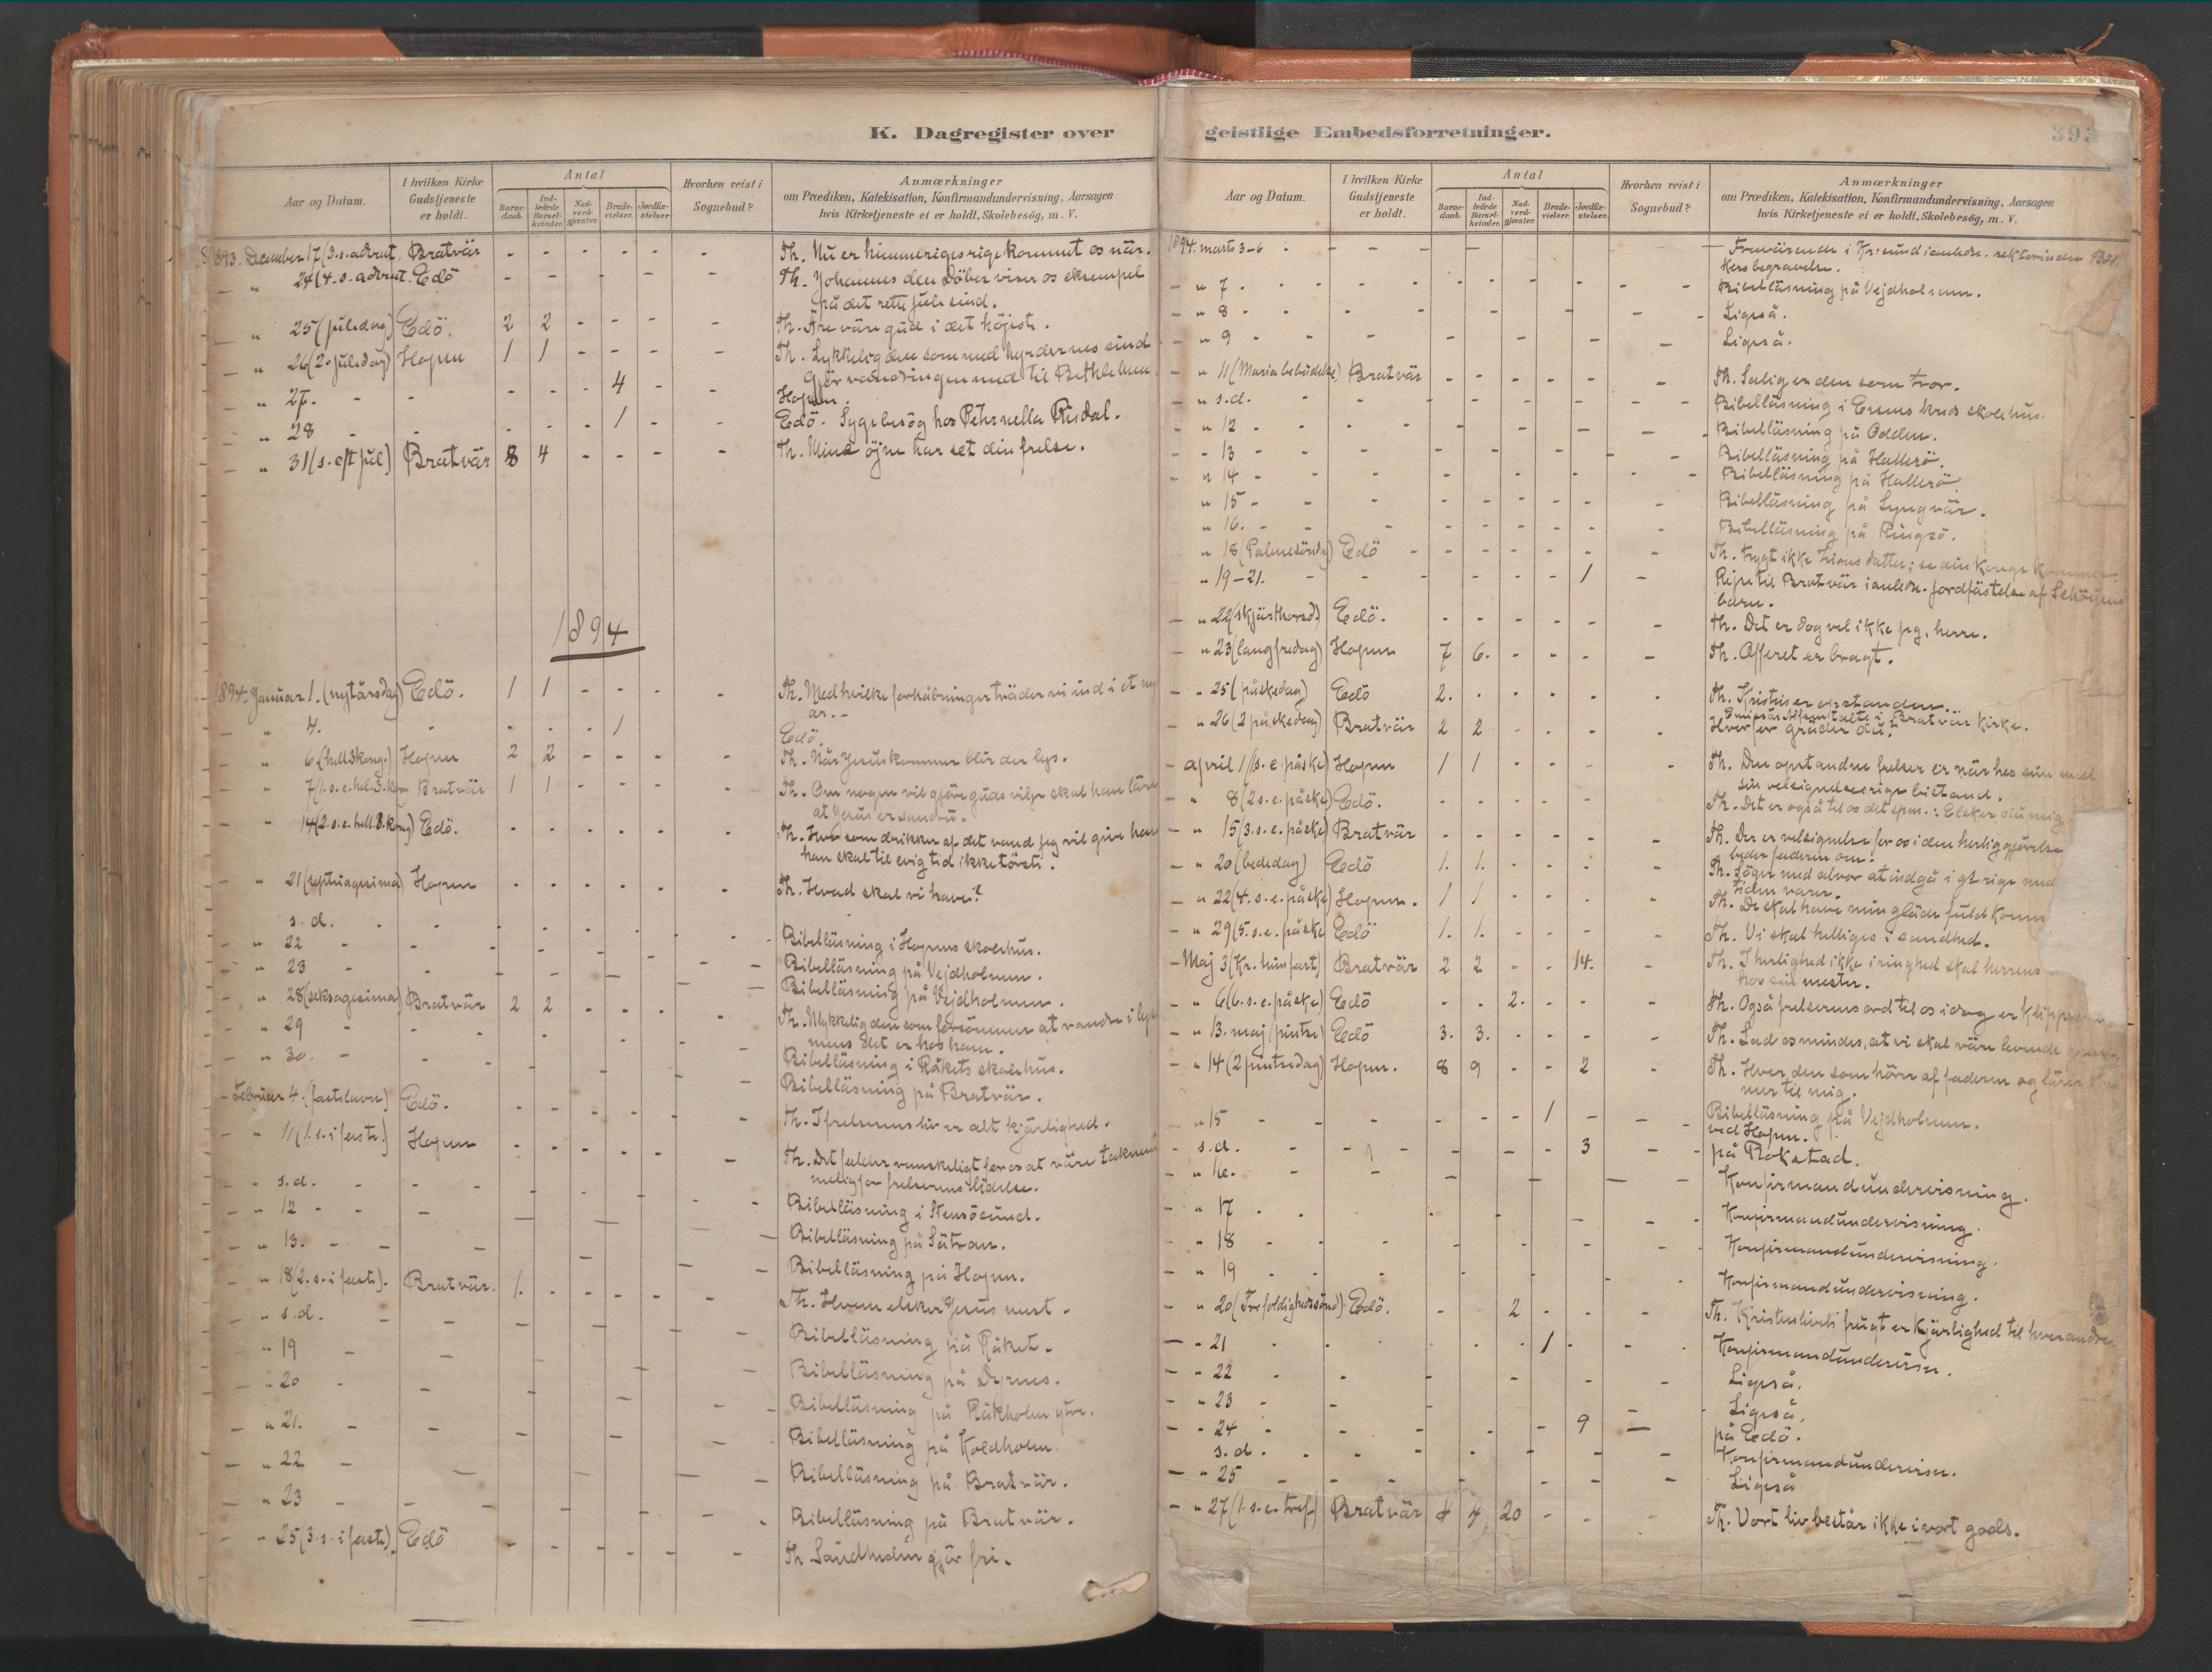 K. Dagregister over
Aar og Datum. I hvilken Kirke Gudstjeneste er holdt. Antal Barnedaab. Indledede Barselkvinder. Nadverdgjæster. Brudevielser. Jordfæstelser Hvorhen reist i Sognebud? Anmærkninger om Prædiken, Katekisation, Konfirmandundervisning, Aarsagen hvis Kirketjeneste ei er holdt, Skolebesög, m. V.
1893. December 17 (3. s. advent. Bratvär - - - - - - Th. Nu er himmeriges rige kommet os när.
" 24 (4. s. advent. Edö - - - - - - Th. Johannes den Döber viser os eksempel
på det rette jule sind.
" 25 (juledag) Edö. 2 2 - - - - Th. Äre väre gud i det höjeste.
" 26 (2. juledag) Hopen 1 1 - - - - Th. Lykkelig den som med hyrdernes sind
gjör vandringen med til Bethlehem.
" 27. - - - - - 4 - - Hopen.
" 28 - - - - - 1 - - Edö. Sygebesög hos Petrnella Risdal.
" 31 (s. eft jul) Bratvär 8 4 - - - - Th. Mine öjne har set din frelse.
1894
1894. Januar 1. (nytårsdag) Edö. 1 1 - - - - Th. Med hvilke forhåbninger träder vi ind i et nyt
år. -
" 4. - - - - 1 Edö.
" 6 (hell. 3 kong.) Hopen 2 2 - - - - Th. Når Jesus kommer blir der lys.
" 7 (1. s. e. hel. 3. kon Bratvär 1 1 - - - - Th. Om nogen vil gjöre guds vilje skal han läre
at Jesus er sandru.
" 14 (2. s. e. hell. 3. kong) Edö. - - - - - - Th. Hvo som drikker af det vand jeg vil give ham
han skal til evig tid ikke törste.
" 21 (septuagesima) Hopen - - - - - - Th. Hvad skal vi have?
s. d. - - - - - - Bibelläsning i Hopens skolehus.
" 22 - - - - - - Bibelläsning på Vejdholmen.
" 23 - - - - - - Bibelläsning på Vejdholmen.
" 28 (seksagesima) Bratvär 2 2 - - - - Th. Ulykkelig den som forsömmer at vandre i lyset
mens det er hos ham.
" 29 - - - - - - Bibelläsning i Råkets skolehus.
" 30. - - - - - - Bibelläsning på Bratvär.
- Februar 4. (fastelavn) Edö. - - - - - - Th. I frelserens liv er alt kjärlighed.
" 11 (1. s. i faste.) Hopen - - - - - - Th. Det falder vanskeligt for os at väre taknem
melig for frelserens lidelse.
" s. d. - - - - - - Bibelläsning i Stensösund.
" 12 - - - - - - Bibelläsning på Sätran.
" 13. - - - - - - Bibelläsning på Hopen.
" 18 (2. s. i faste). Bratvär. 1. - - - - - Th. Hvem elsker Jesus mest -
" s. d. - - - - - - Bibelläsning på Råket.
" 19 - - - - - - Bibelläsning på Dyrnes.
" 20 - - - - - - Bibelläsning på Råkholm ytre.
" 21. - - - - - - Bibelläsning på Koldholm.
" 22 - - - - - - Bibelläsning på Bratvär.
" 23 - - - - - - Bibelläsning på Bratvär.
" 25 (3. s. i faste). Edö - - - - - - Th. Sandheden gjör fri.
geistlige Embedsforretninger.
393
Aar og Datum. I hvilken Kirke Gudstjeneste er holdt. Antal Barnedaab. Indledede Barselkvinder. Nadverdgjæster. Brudevielser. Jordfæstelser. Hvorhen reist i Sognebud? Anmærkninger om Prædiken, Katekisation, Konfirmandundervisning, Aarsagen hvis Kirketjeneste ei er holdt, Skolebesög, m. V.
1894. marts 3-6 - - - - - - Fraværende i Kr:sund i anledn. rektorinde
kers begravelse.
" 7 - - - - - - Bibelläsning på Vejdholmen.
" 8 - - - - - - Ligeså.
" 9 - - - - - - Ligeså.
" 11 (Maria bebudelse) Bratvär - - - - - - Th. Salig er den som tror.
" s. d. - - - - - - Bibelläsning i kreds skolehus.
" 12 - - - - - - Bibelläsning på Odden.
" 13 - - - - - - Bibelläsning på Hallerö.
" 14 - - - - - - Bibelläsning på Hallerö
" 15 - - - - - - Bibelläsning på Lyngvär.
" 16. - - - - - - Bibelläsning på Ringsö.
" 18 (Palmesöndag) Edö - - - - - - Th. Frygt ikke Zions datter; se din konge kommer.
" 19-21. - - - - - 1 - Rejse til Bratvär i anledn. jordfästelse af
barn.
" 22 (skjärthorsd.) Edö. - - - - - - Th. Det er dog vel ikke jeg, herre.
" 23 (langfredag) Hopen 7 6. - - - - Th. Offeret er bragt.
" 25 (påskedag) Edö 2. - - - - - Th. Kristus er opstanden.
" 26 (2 påskedag) Bratvär 2 2 - - - - i Bratvär kirke.
Hvorfor gräder du?
- april 1 (1 s. e. påske) Hopen 1 1 - - - - Th. Den opstandne frelser er när hos sine med
sin velsignelsesrige bistand.
" 8 (2 s. e. påske) Edö. - - - - - - Th. Det er også til os det spm.: Elsker du mig
" 15 (3. s. e. påske) Bratvär - - - - - - Th. Der er velsignelse for os i den herliggjörelse
beder faderen om.
" 20 (bededag) Edö 1. 1. - - - - Th. Söger med alvor at indgå i gs rige med
tiden varer.
" 22 (4. s. e. påske) Hopen. 1 1 - - - - Th. De skal have min gläde fuldkom
" 29 (5. s. e. påske Edö 1. 1. - - - - Th. Vi skal helliges i sandhed.
- Maj 3 (Kr. himfart) Bratvär 2 2 - - 14. - Th. I herlighed ikke i ringhed skal herrens
hos sin mester.
" 6 (6. s. e. påske) Edö - - 2. - - - Th. Også frelserens ord til os idag er klippe
" 13. maj (pintse) Edö 3. 3. - - - - Th. Lad os mindes, at vi skal väre levende
" 14 (2 pintsedag) Hopen. 8 9 - - 2 - Th. Hver, den som hörer af faderen og lärer
mer til mig.
" 15 - - - - - 1 - - Bibelläsning på Vejdholmen.
ved Hopen.
- s. d. - - - - - 3 - - på Rokstad.
- " 16. - - - - - - Konfirmandundervisning.
- " 17 - - - - - - Konfirmandundervisning.
- " 18 - - - - - - Konfirmandundervisning.
- " 19 - - - - - - Konfirmandundervisning.
- " 20 (Trefoldighedssönd) Edö. - 2 - - - Th. Kristuslivets frugt er kjärlighed til hverandre.
- " 21 - - - - 1 - - Konfirmandundervisn.
- " 22 - - - - - - Ligeså.
- " 23 - - - Ligeså.
- " 24 - - - - - 9 - på Edö.
s. d. - - - - - - Konfirmandundervisn.
- " 25 - - - - - - Ligeså
- " 27 (1. s. e. tref.) Bratvär 4 4 20 - - - Th. Vort liv består ikke i vort gods.